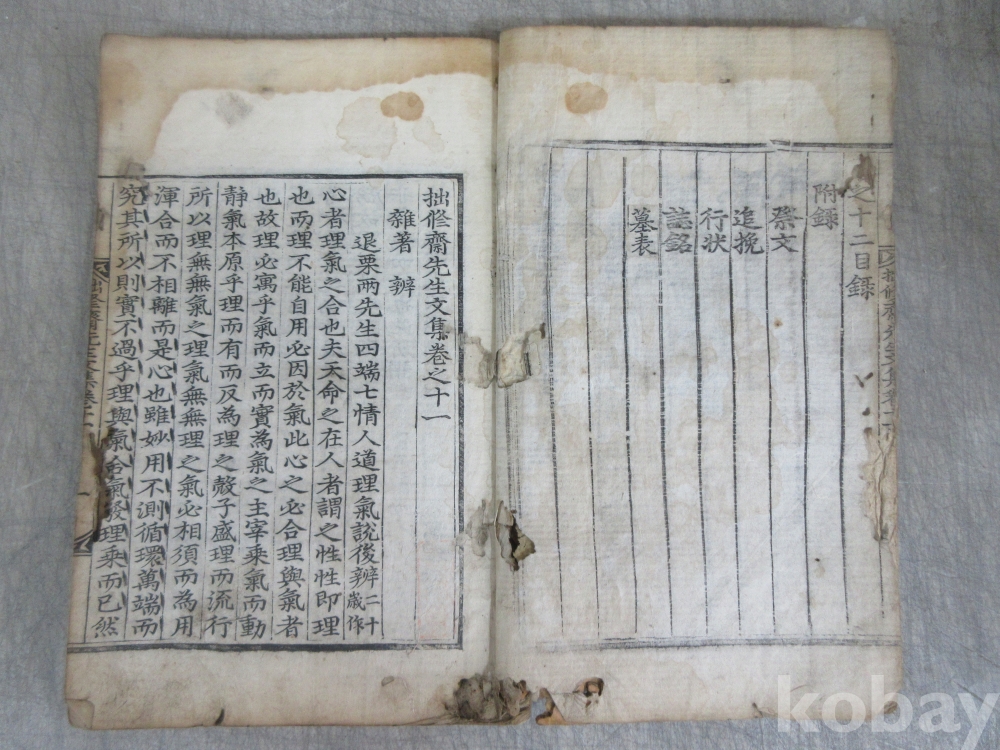 之十二目録
附録
祭文
追挽
行狀
誌銘
墓表
拙修齋先生文集卷之十一
雜著 辨
退栗兩先生四端七情人道理氣說後辨二十歲作
心者理氣之合也夫天命之在人者謂之性性即理
也而理不能自用必因於氣此心之必合理與氣者
也故理必寓乎氣而立而實為氣之主宰乘氣而動
靜氣本原乎理而有而反為理之殼子盛理而流行
所以理無無氣之理氣無無理之氣必相須而為用
渾合而不相離而是心也雖妙用不測循環萬端而
究其所以則實不過乎理與氣合氣發理乘而已然
kobay